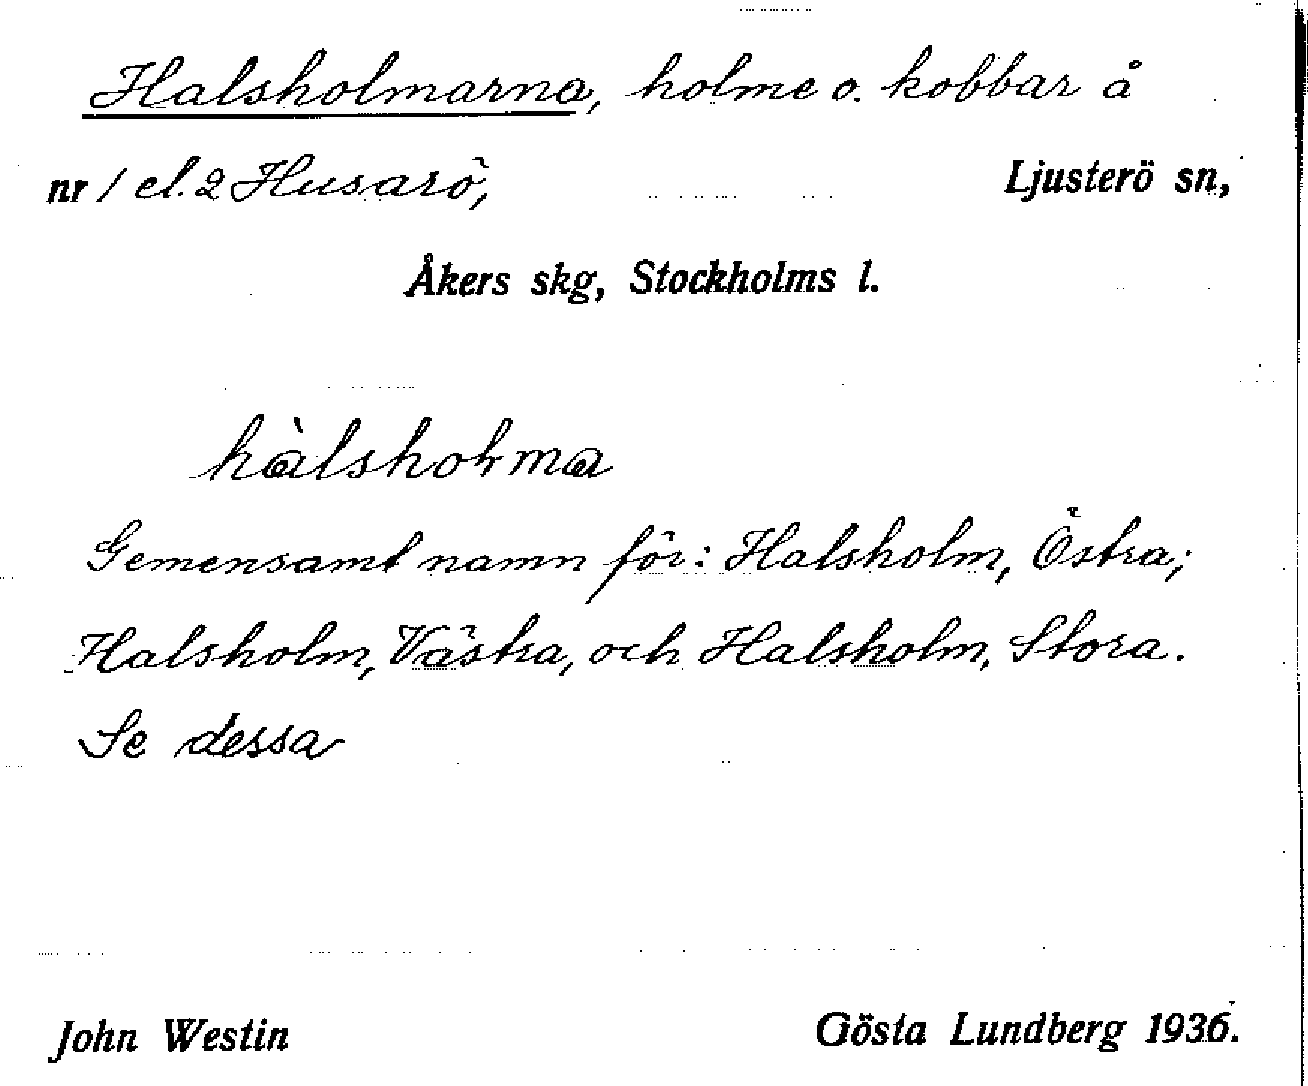 Halsholmarna, holme o. kobbar å
nr 1 el. 2 Husarö, Ljusterö sn,
Åkers skg, Stockholms l.
hàlshoɫma
Gemensamt namn för: Halsholm, Östra;
Halsholm, Västra, och Halsholm, Stora.
Se dessa
John Westin Gösta Lundberg 1936.